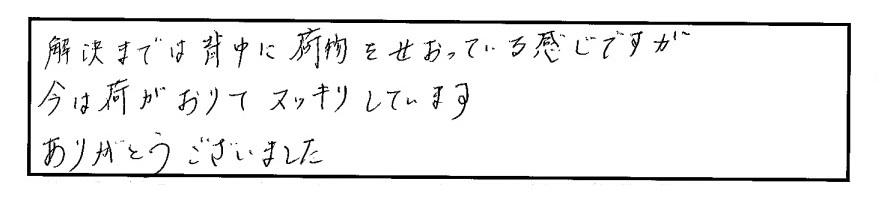 解決までは背中に荷物をせおっている感じですが
今は荷がおりてスッキリしています
ありがとうございました